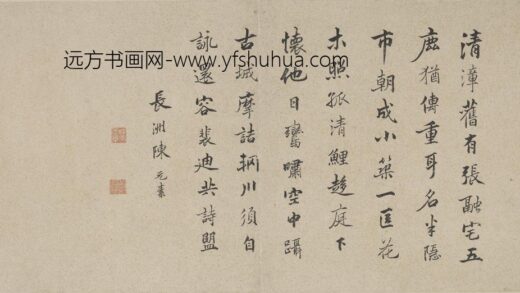 清漳舊有張融宅五
鹿猶傳重耳名半隱
市朝成小築一區花
木照孤清鯉趨庭下
懷他日鸞嘯空中躡
古城摩詰輞川須自
詠還容裴迪共詩盟
長洲陳元素
远方书画网-www.yfshuhua.com